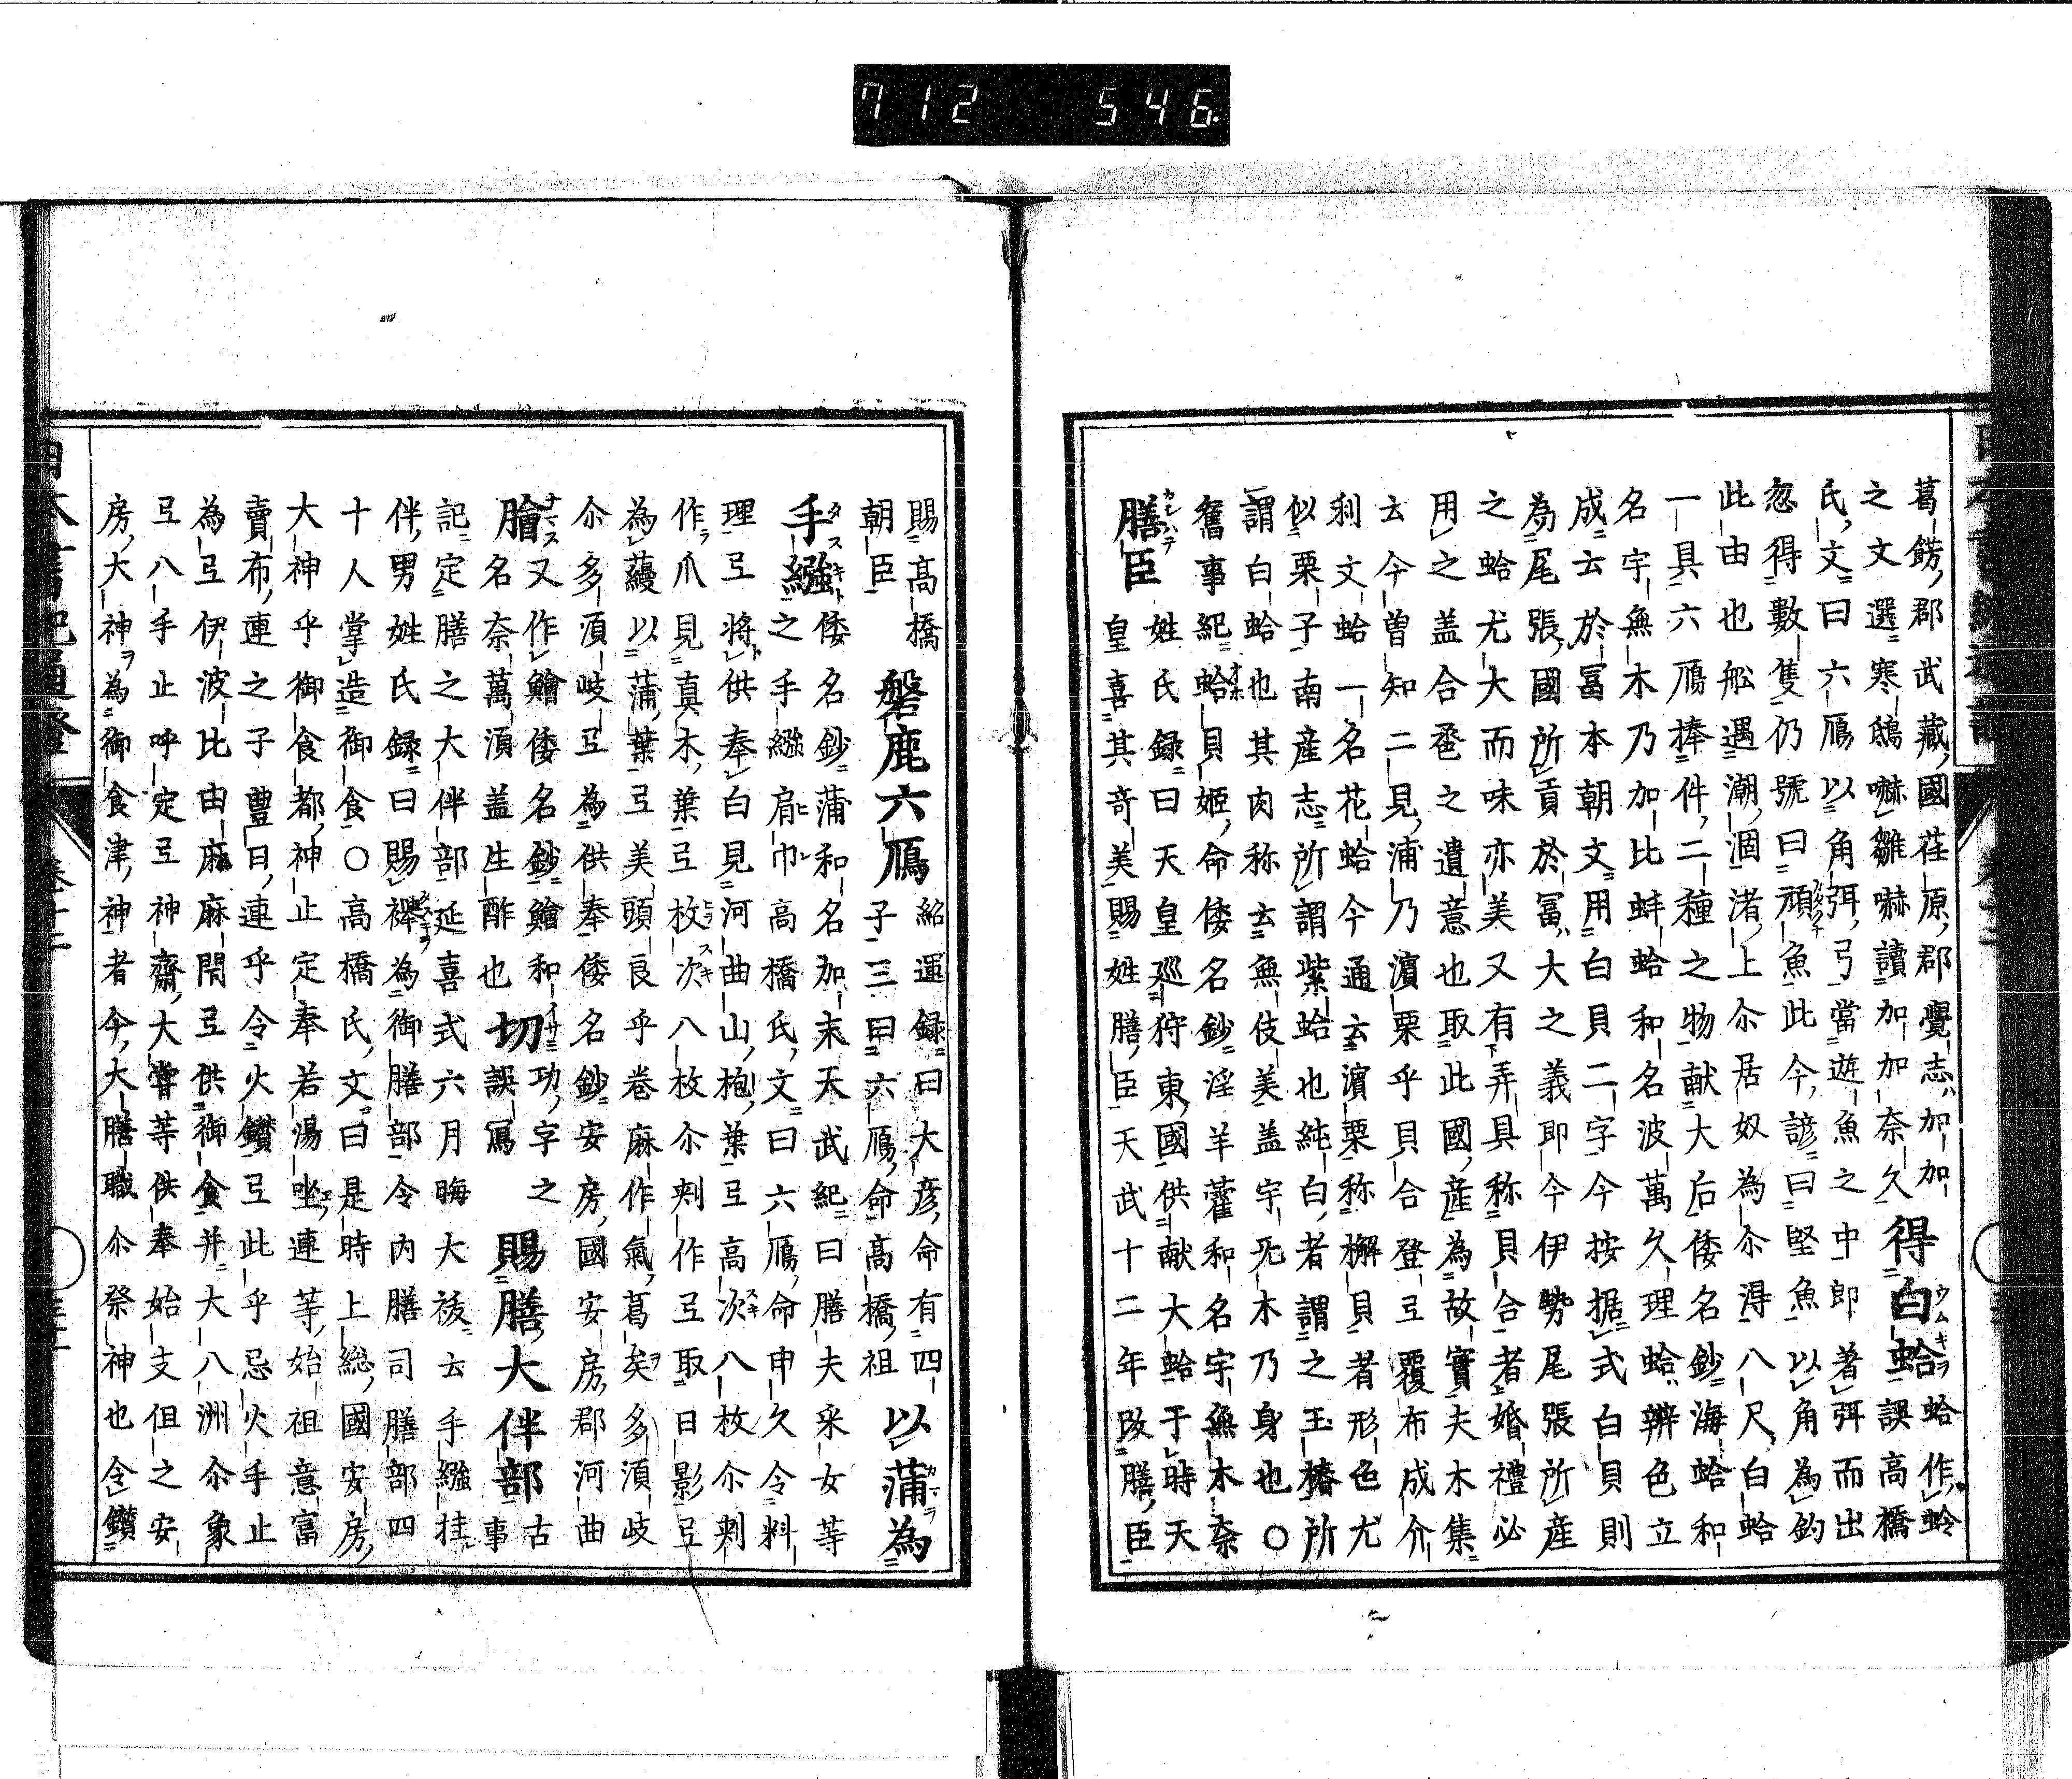 712 546.
葛餝郡武藏國荏原郡覺志加加
之文選寒鴟嚇雛嚇讀加加奈久得白蛤蛤作蛉
氏文曰六鴈以角弭弓當遊魚之中即著弭而出誤高橋
忽得數隻仍號曰頑魚此今諺曰堅魚以角為釣
此由也舩遇潮涸渚上尒居奴為尒得八尺白蛤
一具六鴈捧件二種之物献大后倭名鈔海蛤和
名宇無木乃加比蚌蛤和名波萬久理蛤辨色立
成云於冨本朝文用白貝二字今按据式白貝則
為尾張國所貢於冨大之義即今伊勢尾張所産
之蛤尤大而味亦美又有弄具称貝合者婚禮必
用之盖合巹之遺意也取此國産為故實夫木集
云今曽知二見浦乃濵栗乎貝合登弖覆布成介
利文蛤一名花蛤今通云濵栗称懈貝者形色尤
似栗子南産志所謂紫蛤也純白者謂之玉椿所
謂白蛤也其肉称云無伎美盖宇死木乃身也〇
舊事紀蛤貝姫命倭名鈔淫羊藿和名宇無木奈
膳臣姓氏録曰天皇巡狩東國供献大蛤于時天
皇喜其奇美賜姓膳臣天武十二年改膳臣
賜高橋朝臣
磐鹿六鴈紹運録曰大彦命有四子三曰六鴈命高橋祖以蒲為
手繦倭名鈔蒲和名加末天武紀曰膳夫采女等之手繦肩巾高橋氏文曰六鴈命申久令料
理弖将供奉白見河曲山梔葉弖高次八枚尒刺
作爪見真木葉弖枚次八枚尒刺作弖取日影弖
為蘰以蒲葉弖美頭良乎巻麻作氣葛矣多湏岐
尒多湏岐弖為供奉倭名鈔安房國安房郡河曲
膾又作鱠倭名鈔鱠和名奈萬湏盖生酢也切功字之誤寫賜膳大伴部古事
記定膳之大伴部延喜式六月晦大祓云手繦挂
伴男姓氏録曰賜襷為御膳部令内膳司膳部四
十人掌造御食〇高橋氏文曰是時上総國安房
大神乎御食都神止定奉若湯坐連等始祖意富
賣布連之子豊日連乎令火鑽弖此乎忌火手止
為弖伊波比由麻麻閇弖供御食并大八洲尒象
弖八手止呼定弖神齋大嘗等供奉始支但之安
房大神為御食津神者今大膳職尒祭神也令鑽